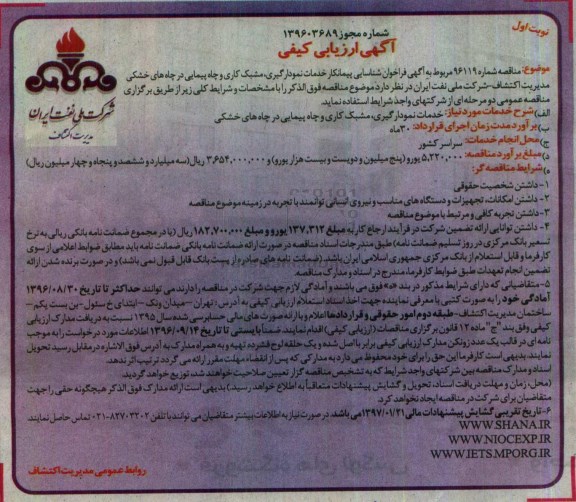 نوبت اول
شماره مجوز ۱۳۹۶۰۳۶۸۹
آگهی ارزیابی کیفی
شرکت ملی نفت ایران
مدیریت اکتشاف
موضوع: مناقصه شماره ۹۶۱۱۹ مربوط به آگهی فراخوان شناسایی پیمانکار خدمات نمودارگیری، مشبک کاری و چاه پیمایی در چاه های خشکی
مدیریت اکتشاف-شرکت ملی نفت ایران در نظر دارد موضوع مناقصه فوق الذکر را با مشخصات و شرایط کلی زیر از طریق برگزاری
مناقصه عمومی دو مرحله ای از شرکتهای واجد شرایط استفاده نماید.
الف) شرح خدمات مورد نیاز: خدمات نمودارگیری، مشبک کاری و چاه پیمایی در چاه های خشکی
ب) برآورد مدت زمان اجرای قرارداد: ۳۰ماه
ج) محل انجام خدمات: سراسر کشور
د) مبلغ برآورد مناقصه: ۵،۲۲۰،۰۰۰ یورو (پنج میلیون و دویست و بیست هزار یورو) و ۳،۶۵۴،۰۰۰،۰۰۰ ریال (سه میلیارد و ششصد و پنجاه و چهار میلیون ریال)
ه) شرایط مناقصه گر:
۱- داشتن شخصیت حقوقی
۲- داشتن امکانات، تجهیزات و دستگاه های مناسب و نیروی انسانی توانمند با تجربه در زمینه موضوع مناقصه
۳- داشتن تجربه کافی و مرتبط با موضوع مناقصه
۴- داشتن توانایی ارائه تضمین شرکت در فرآیند ارجاع کار به مبلغ ۱۳۷،۳۱۲ یورو و مبلغ ۱۸۲،۷۰۰،۰۰۰ ریال (یا در مجموع ضمانت نامه بانکی ریالی به نرخ
تسعیر بانک مرکزی در روز تسلیم ضمانت نامه) طبق مندرجات اسناد مناقصه در صورت ارائه ضمانت نامه بانکی ضمانت نامه باید مطابق ضوابط اعلامی از سوی
کارفرما و قابل استعلام از بانک مرکزی جمهوری اسلامی ایران باشد. (ضمانت نامه های صادره از پست بانک قابل قبول نمی باشد) و در صورت برنده شدن ارائه
تضمین انجام تعهدات طبق ضوابط کارفرما، مندرج در اسناد و مدارک مناقصه.
۵- متقاضیانی که دارای شرایط مذکور در بند «ه» فوق می باشند و آمادگی لازم جهت شرکت در مناقصه را دارند می توانند حداکثر تا تاریخ ۱۳۹۶/۰۸/۳۰
آمادگی خود را به صورت کتبی با معرفی نماینده جهت اخذ اسناد استعلام ارزیابی کیفی به آدرس: تهران -میدان ونک - ابتدای خ سئول -بن بست یکم-
ساختمان مدیریت اکتشاف-طبقه دوم امور حقوقی و قراردادها اعلام و با ارائه صورت های مالی حسابرسی شده سال ۱۳۹۵ نسبت به دریافت مدارک ارزیابی
کیفی وفق بند "ج" ماده ۱۲ قانون برگزاری مناقصات (ارزیابی کیفی) اقدام نمایند. ضمناً بایستی تا تاریخ ۱۳۹۶/۰۹/۱۴ اطلاعات مورد درخواست را به موجب
نامه ای در قالب یک عدد زونکن مدارک ارزیابی کیفی برابر با اصل شده و یک حلقه لوح فشرده تهیه و به همراه مدارک به آدرس فوق الاشاره در مقابل رسید تحویل
نمایند. بدیهی است کارفرما این حق را برای خود محفوظ می دارد به مدارکی که پس از انقضاء مهلت مقرر ارائه می گردد ترتیب اثر ندهد.
اسناد و مدارک مناقصه بین شرکتهای واجد شرایط که به تشخیص مناقصه گزار تعیین صلاحیت خواهند شد، توزیع خواهد گردید.
(محل، زمان و مهلت دریافت اسناد، تحویل و گشایش پیشنهادات متعاقباً به اطلاع خواهد رسید.) بدیهی است ارائه مدارک فوق الذکر هیچگونه حقی را جهت
متقاضیان برای شرکت در مناقصه ایجاد نخواهد کرد.
۶-تاریخ تقریبی گشایش پیشنهادات مالی ۱۳۹۷/۰۱/۲۱ می باشد. در صورت نیاز به اطلاعات بیشتر متقاضیان می توانند با تلفن ۸۲۷۰۳۲۰۲-۰۲۱ تماس حاصل نمایند.
WWW.SHANA.IR
WWW.NIOCEXP.IR
WWW.IETS.MPORG.IR
روابط عمومی مدیریت اکتشاف